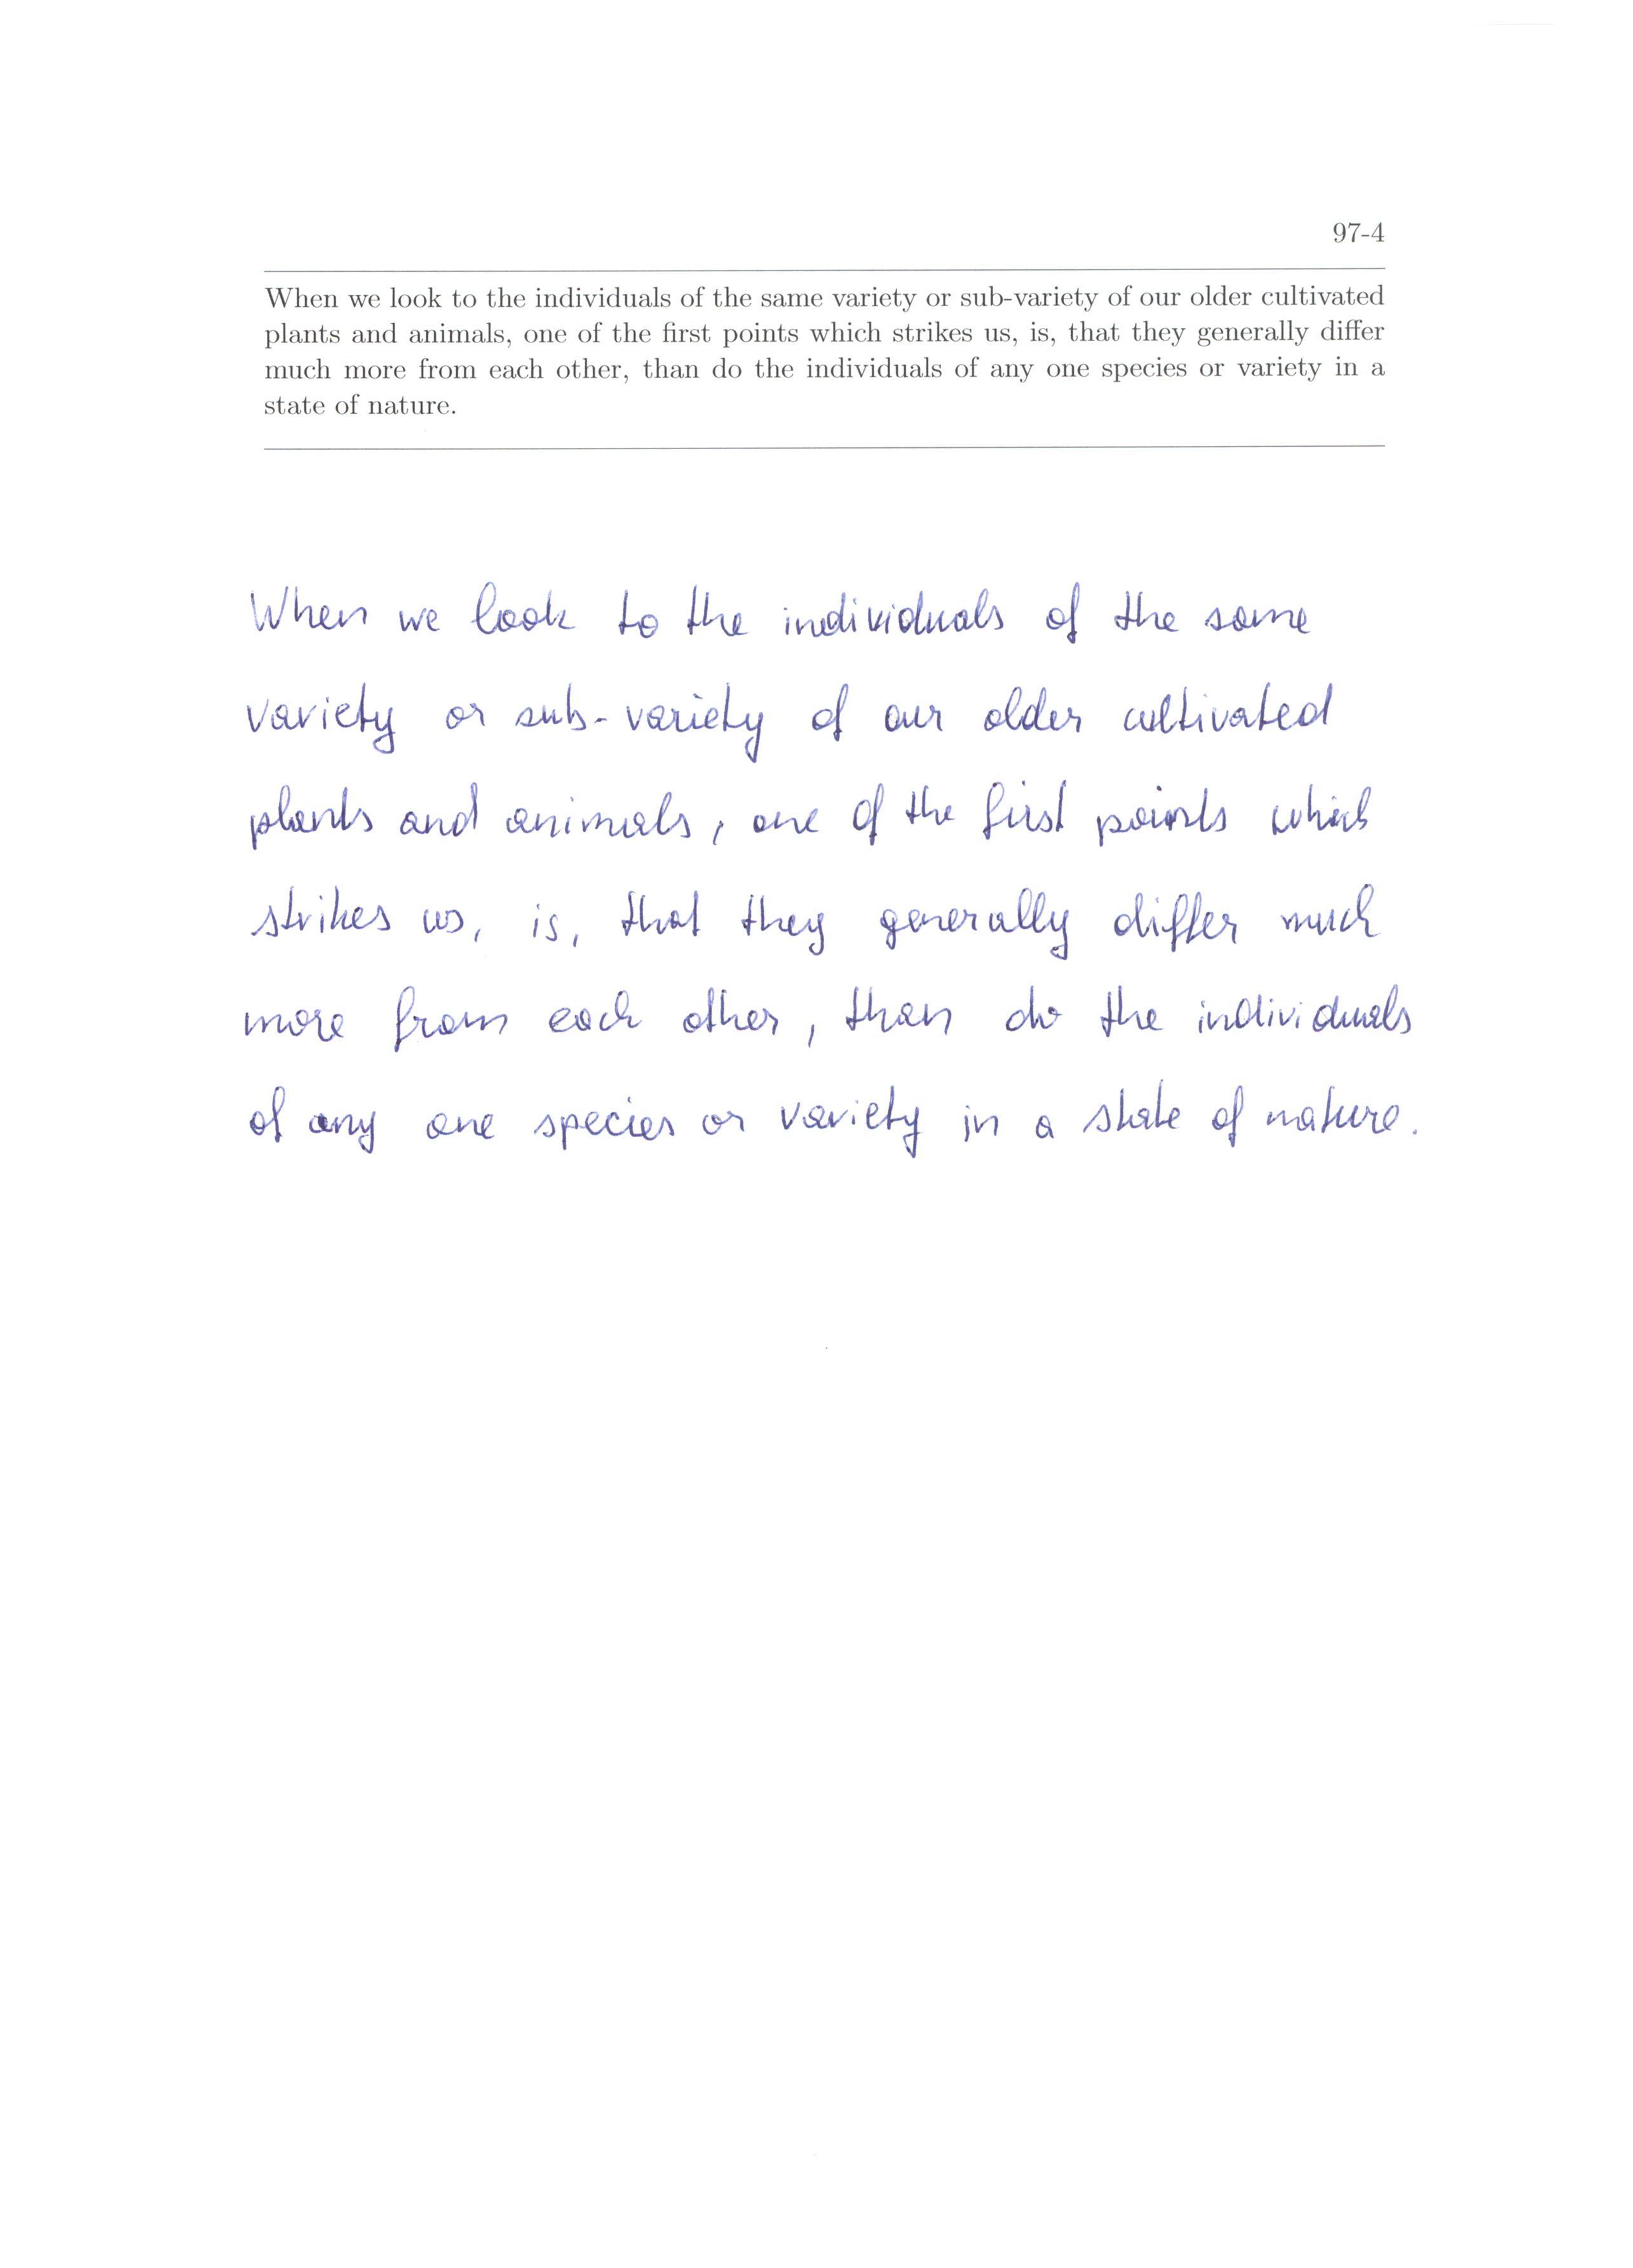 97-4
When we look to the individuals of the same variety or sub-variety of our older cultivated
plants and animals, one of the first points which strikes us, is, that they generally differ
much more from each other, than do the individuals of any one species or variety in a
state of nature.
When we look to the individuals of the same
variety or sub-variety of our older cultivated
plants and animals, one of the first points which
strikes us, is, that they generally differ much
more from each other, than do the individuals
of any one species or variety in a state of nature.